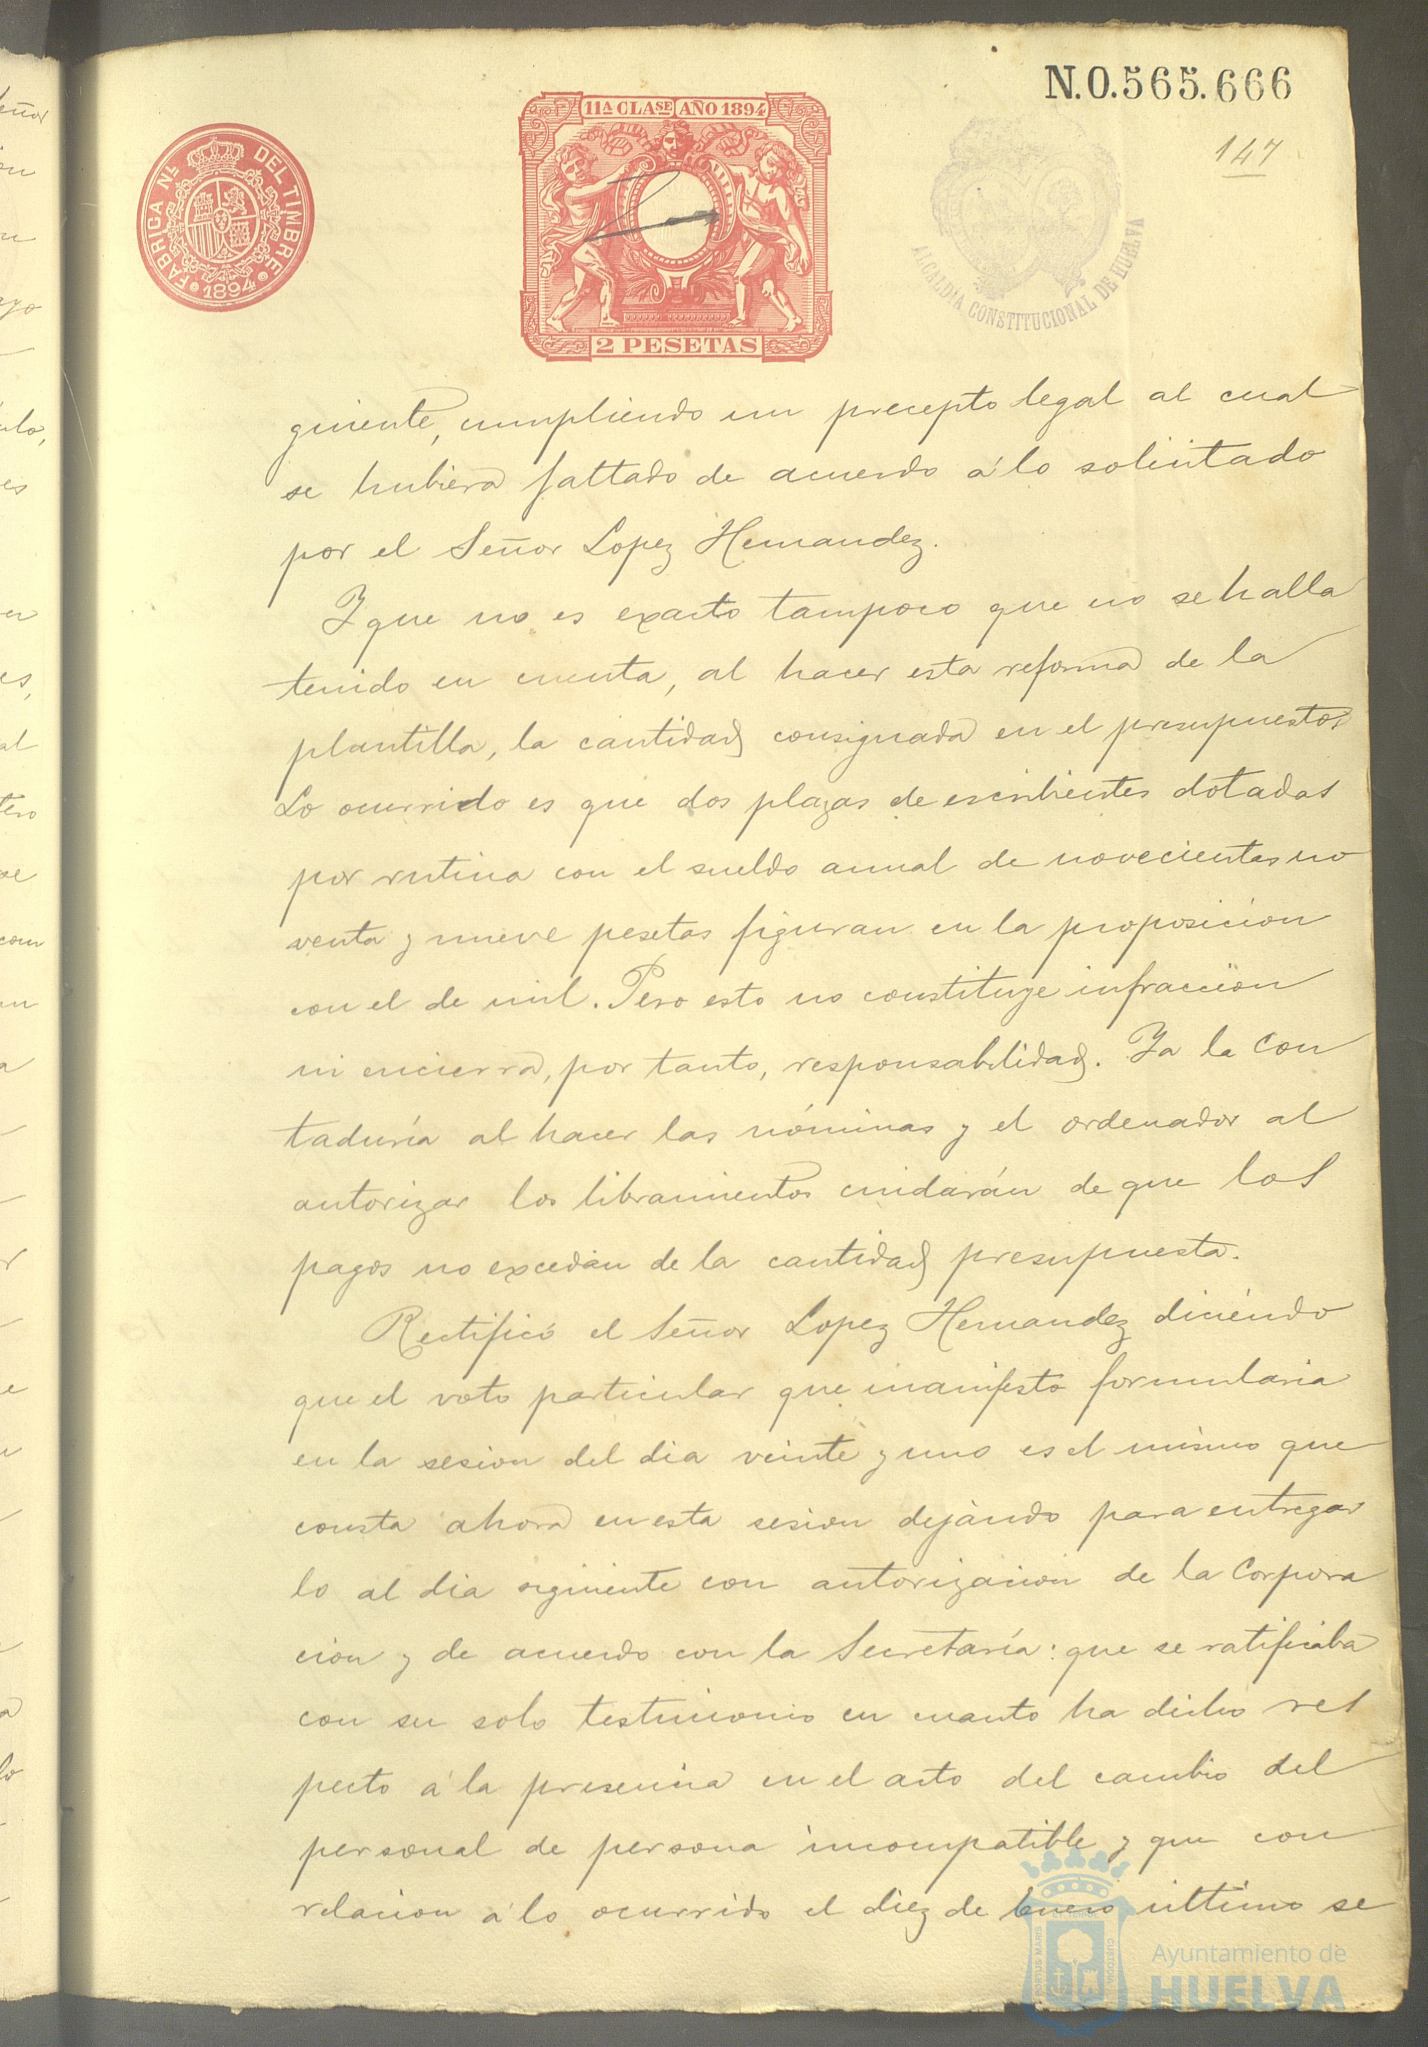 N.0.565.666
147
11ª CLASE AÑO 1894
FABRICA Nᴸ DEL TIMBRE
1894
2 PESETAS
ALCALDIA CONSTITUCIONAL DE HUELVA
guiente, cumpliendo un precepto legal al cual
se hubiera faltado de acuerdo á lo solicitado
por el Señor Lopez Hernandez.
Y que no es exacto tampoco que no se halla
tenido en cuenta, al hacer esta reforma de la
plantilla, la cantidad consignada en el presupuesto.
Lo ocurrido es que dos plazas de escribientes dotadas
por rutina con el sueldo anual de novecientas no
venta y nueve pesetas figuran en la proposicion
con el de mil. Pero esto no constituye infraccion
ni encierra, por tanto, responsabilidad. Ya la Con
taduría al hacer las nóminas y el ordenador al
autorizar los libramientos cuidarán de que los
pagos no excedan de la cantidad presupuesta.
Rectificó el Señor Lopez Hernandez diciendo
que el voto particular que manifesto formularia
en la sesion del dia veinte y uno es el mismo que
consta ahora en esta sesion dejando para entregar
lo al dia siguiente con autorizacion de la Corpora
cion y de acuerdo con la Secretaría: que se ratificaba
con su solo testimonio en cuanto ha dicho res
pecto á la presencia en el acto del cambio del
personal de persona incompatible y que con
relacion á lo ocurrido el diez de Enero último se
PORTUS MARIS
CUSTODIA
Ayuntamiento de
HUELVA